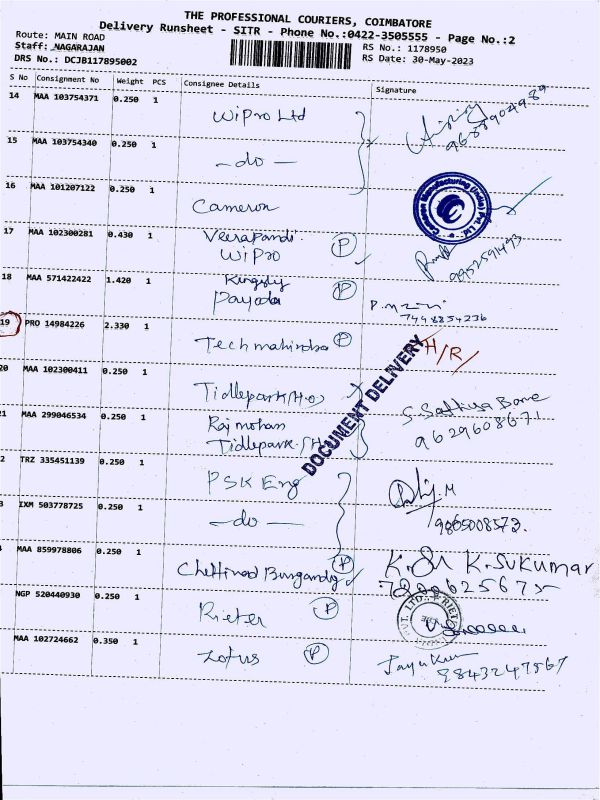 THE PROFESSIONAL COURIERS, COIMBATORE
Delivery Runsheet - SITR - Phone No.:0422-3505555 - Page No.:2
Route: MAIN ROAD
Staff: NAGARAJAN
RS No.: 1178950
DRS No.: DCJB117895002
RS Date: 30-May-2023
S No Consignment No Weight PCS Consignee Details Signature
14 MAA 103754371 0.250 1 WiPro Ltd
15 MAA 103754340 0.250 1 - do -
16 MAA 101207122 0.250 1 Cameron
Cameron Manufacturing (India) Pvt. Ltd.
17 MAA 102300281 0.430 1 Veerapandi P
WiPro
18 MAA 571422422 1.420 1 Kingsly P
Payoda
7448854236
19 PRO 14984226 2.330 1 Techmahindra P H/R/
20 MAA 102300411 0.250 1 Tidlepark (H.O)
DOCUMENT DELIVERY
21 MAA 299046534 0.250 1 Raj mohan 9629608671
Tidlepark
2 TRZ 335451139 0.250 1 PSK Eng
3 IXM 503778725 0.250 1 - do - 9865008572.
MAA 859978806 0.250 1 Chettinad P K. Sukumar
NGP 520440930 0.250 1 Rieter P
MAA 102724662 0.350 1 Lotus P